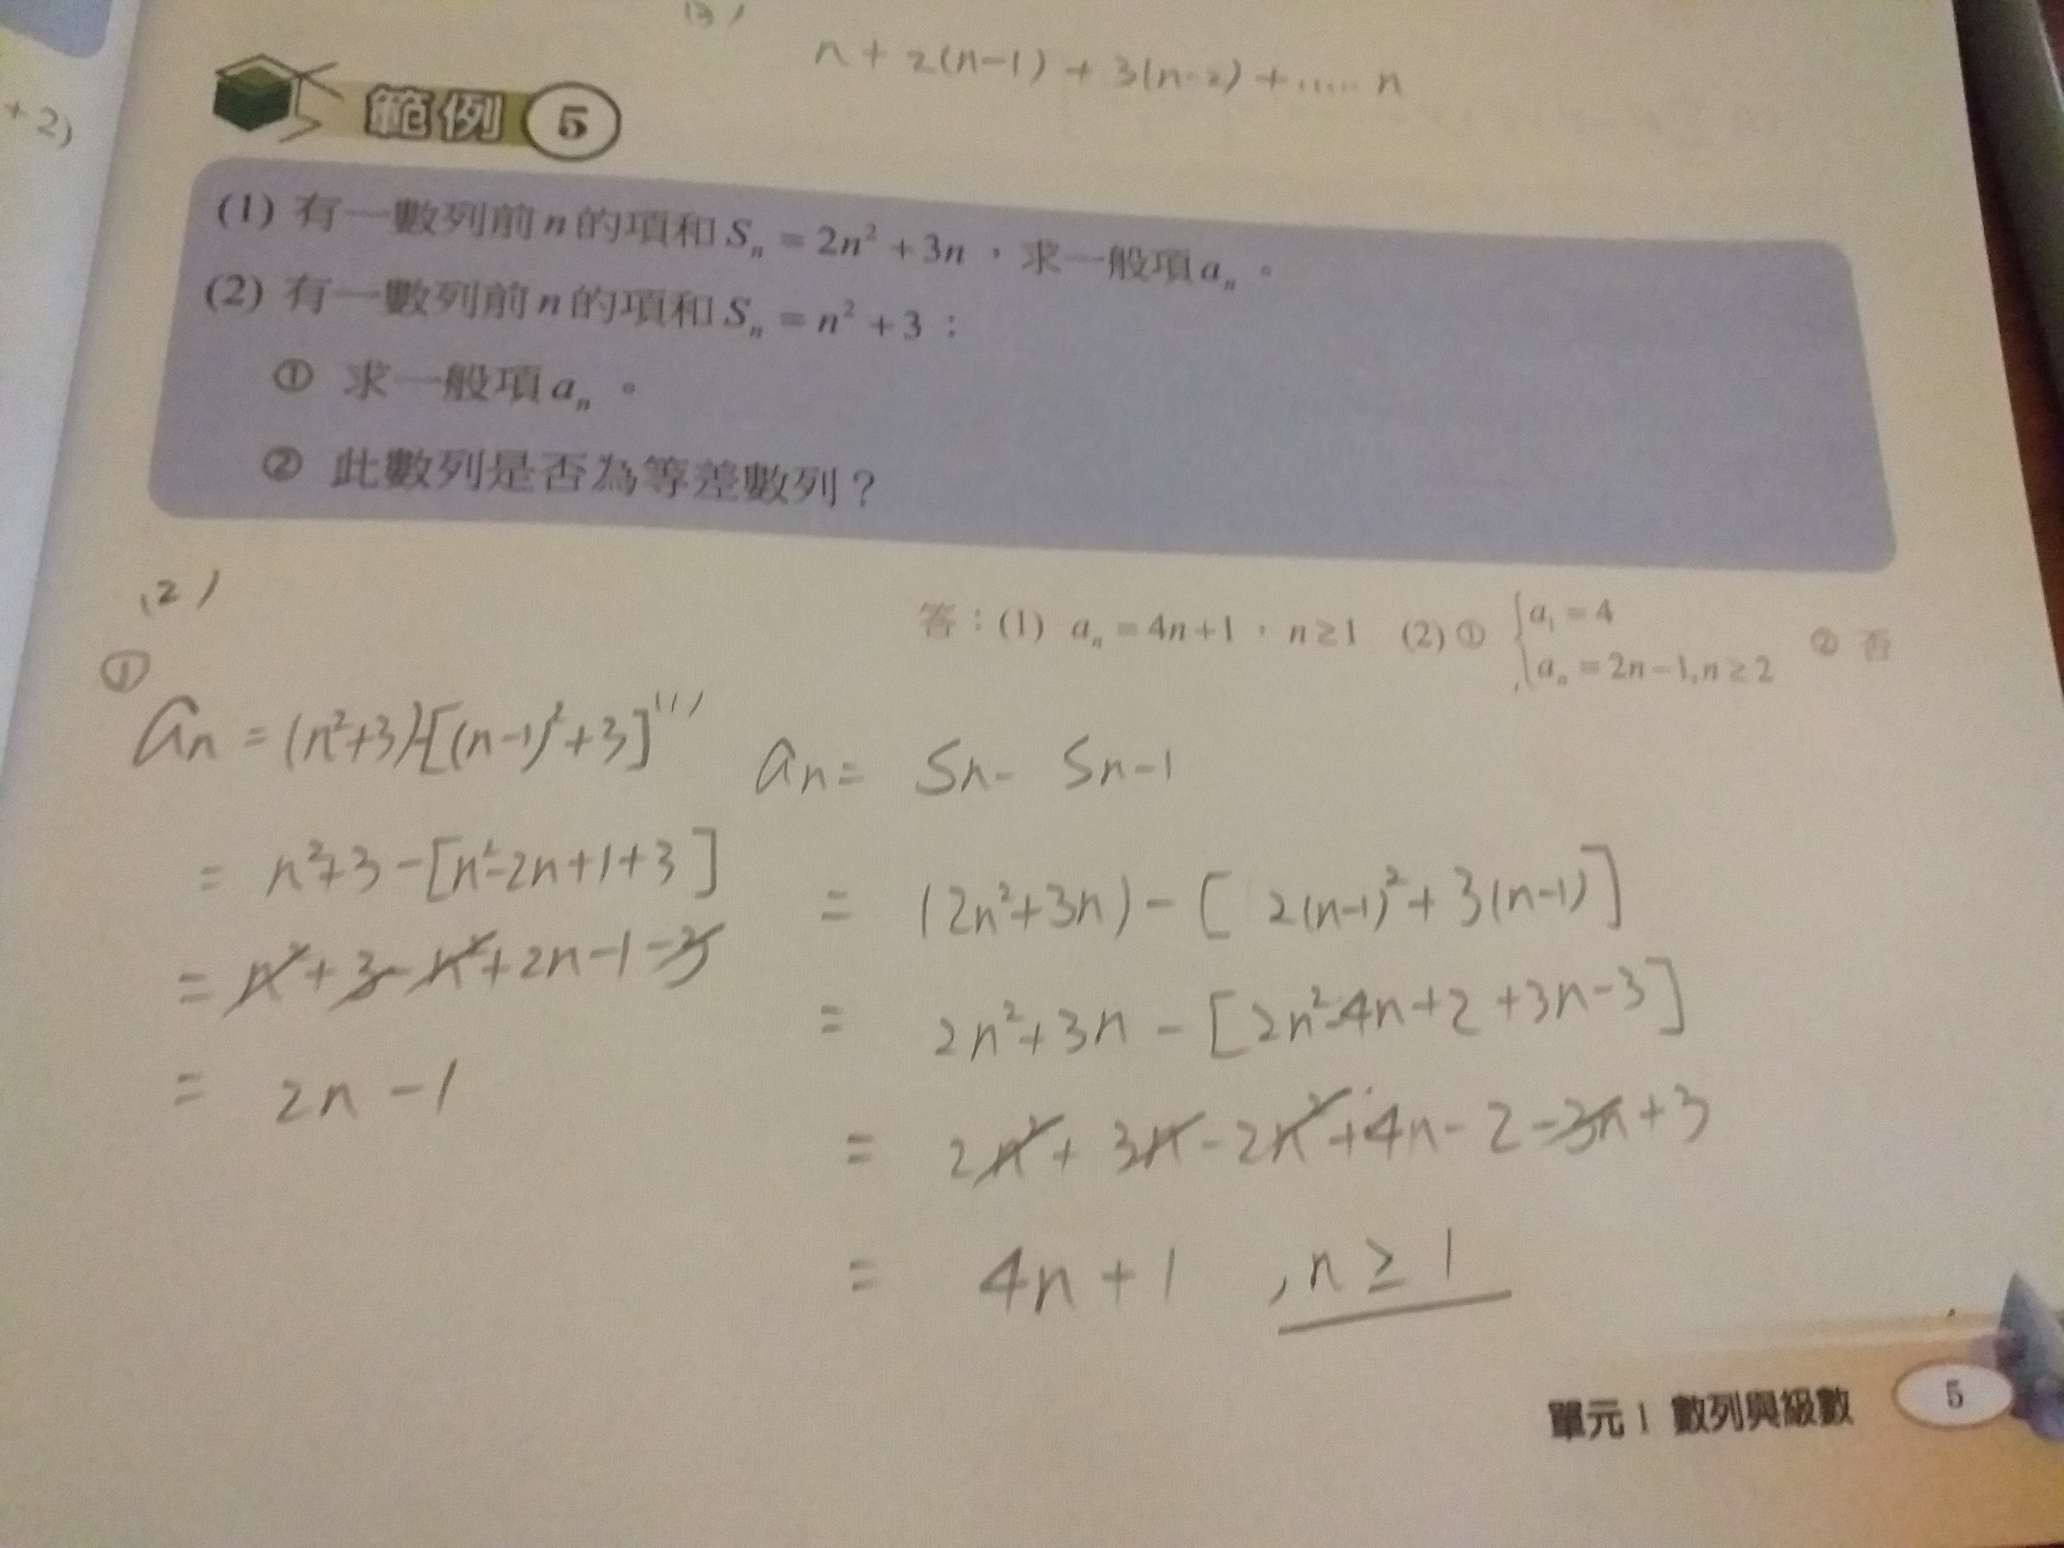 (3)
n + 2(n-1) + 3(n-2) + ..... n
+ 2)
範例 5
(1) 有一數列前 n 的項和 Sₙ = 2n² + 3n，求一般項 aₙ。
(2) 有一數列前 n 的項和 Sₙ = n² + 3：
① 求一般項 aₙ。
② 此數列是否為等差數列？
答：(1) aₙ = 4n+1，n ≥ 1 (2) ① { a₁ = 4
aₙ = 2n-1, n ≥ 2 ② 否
(2)
①
aₙ = (n²+3)-[(n-1)²+3]
= n²+3-[n²-2n+1+3]
= n²+3-n²+2n-1-3
= 2n-1
(1)
aₙ = Sn - Sn-1
= (2n²+3n) - [2(n-1)²+3(n-1)]
= 2n²+3n - [2n²-4n+2+3n-3]
= 2n²+3n-2n²+4n-2-3n+3
= 4n+1 , n ≥ 1
單元 1 數列與級數 5